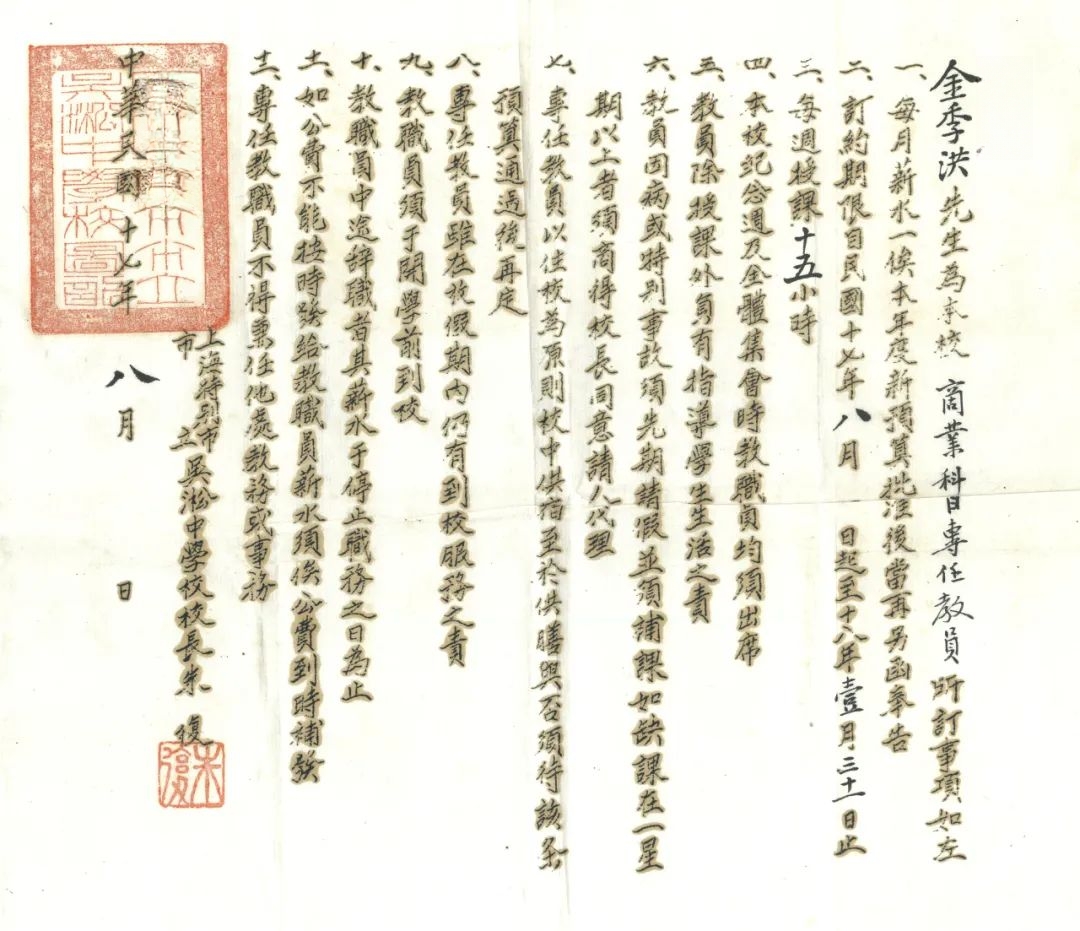 金季洪先生為本校商業科目專任教員所訂事項如左
一、每月薪水一俟本年度新預算批准後當再另函奉告
二、訂約期限自民國十七年八月　日起至十八年壹月三十一日止
三、每週授課十五小時
四、本校紀念週及全體集會時教職員均須出席
五、教員除授課外負有指導學生生活之責
六、教員因病或特别事故須先期請假並須補課如缺課在一星
期以上者須商得校長同意請人代理
七、專任教員以住校為原則校中供宿至於供膳與否須待該条
預算通過後再定
八、專任教員雖在校假期内仍有到校服務之責
九、教職員須于開學前到校
十、教職員中途辞職者其薪水于停止職務之日為止
十一、如公費不能按時發給教職員薪水須俟公費到時補發
十二、專任教職員不得兼任他處教務或事務
上海特别市市立吳淞中學校校長朱復
中華民國十七年八月　日
朱復